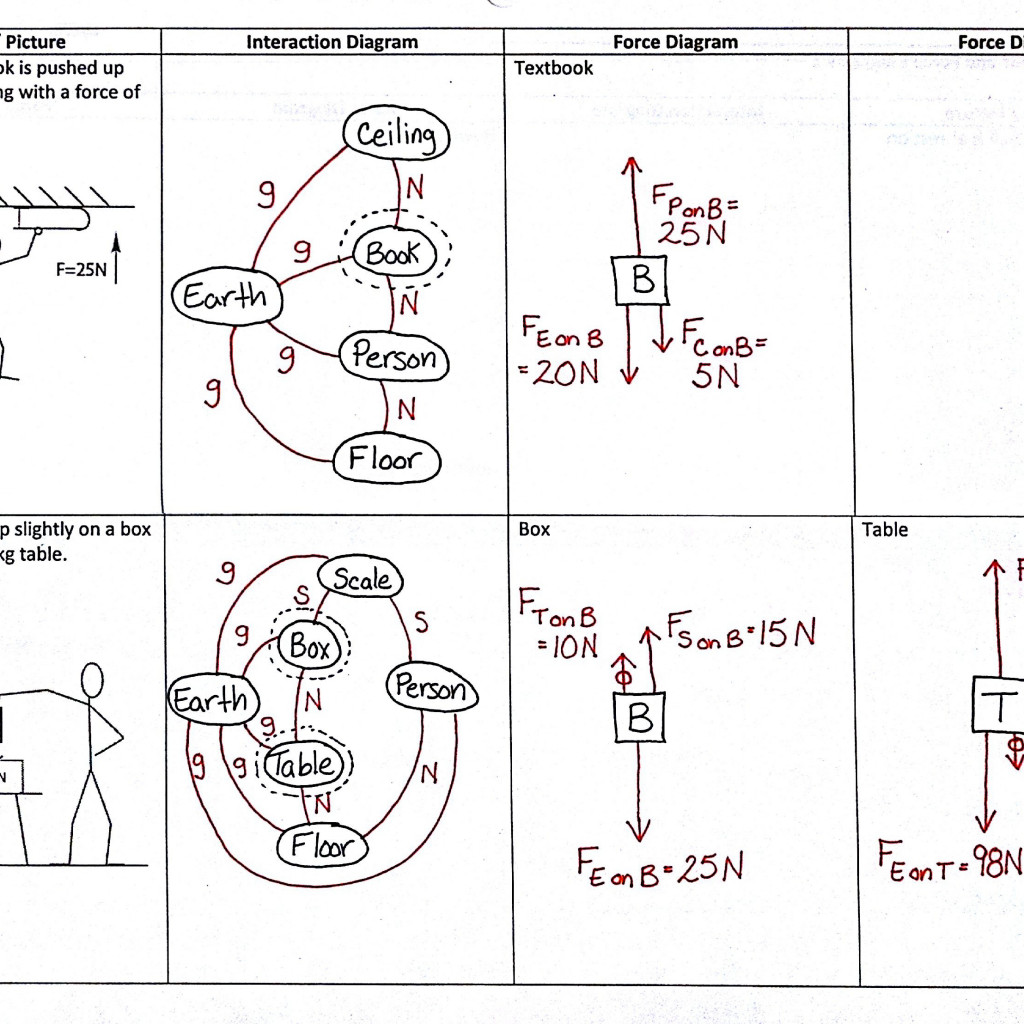 Picture
Interaction Diagram
Force Diagram
Force Di
ok is pushed up
ng with a force of
F=25N
Ceiling
g
N
g
Book
Earth
N
g
Person
g
N
Floor
Textbook
F P on B =
25N
B
F E on B
= 20N
F C on B =
5N
p slightly on a box
kg table.
N
g
Scale
S
S
g
Box
Earth
N
Person
g
g
g
Table
N
N
Floor
Box
F T on B
= 10N
F S on B = 15N
B
F E on B = 25N
Table
F
T
F E on T = 98N